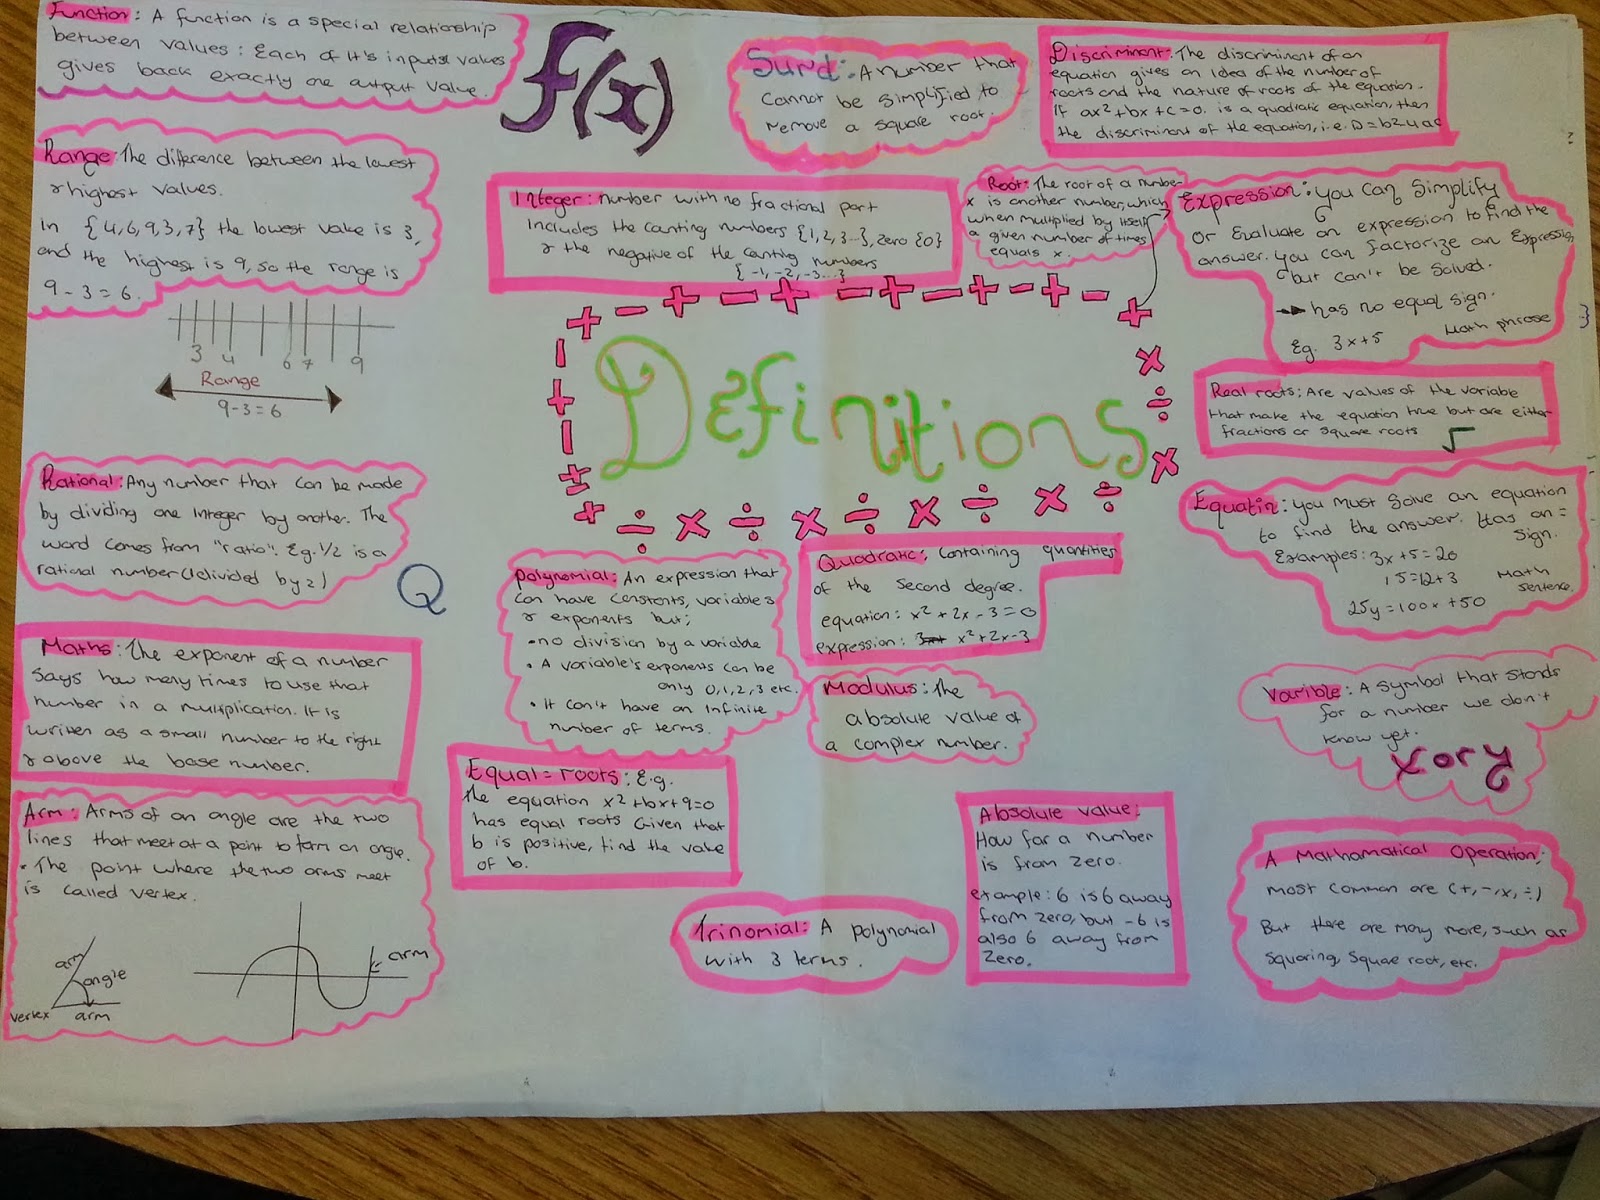 Function: A function is a special relationship
between values: Each of it's inputs values
gives back exactly one output value.
f(x)
Surd: A number that
cannot be simplified to
remove a square root.
Discriminant: The discriminant of an
equation gives an idea of the number of
roots and the nature of roots of the equation.
If ax²+bx+c=0. is a quadratic equation, then
the discriminant of the equation, i.e. D=b2-4ac
Range: The difference between the lowest
& highest values.
In {4,6,9,3,7} the lowest value is 3,
and the highest is 9, so the range is
9-3=6.
3 4 6 7 9
Range
9-3=6
Integer: number with no fractional part
Includes the counting numbers {1,2,3...}, zero {0}
& the negative of the counting numbers
{-1,-2,-3...}
Root: The root of a number
x is another number, which
when multiplied by itself
a given number of times
equals x.
Expression: you can simplify
or evaluate an expression to find the
answer. you can factorize an Expression
but can't be solved.
→ has no equal sign.
Eg. 3x+5 Math phrase
Definitions
Real roots: Are values of the variable
that make the equation true but are either
fractions or square roots √
Rational: Any number that can be made
by dividing one integer by another. The
word comes from "ratio". Eg. 1/2 is a
rational number (1 divided by 2)
Q
Equatin: you must solve an equation
to find the answer. Has an =
sign.
Examples: 3x+5=20
15=12+3 Math
sentence.
25y=100x+50
Polynomial: An expression that
can have constants, variables
& exponents but;
• no division by a variable
• A variable's exponents can be
only 0,1,2,3 etc.
• It can't have an infinite
number of terms.
Quadratic: Containing quantities
of the second degree.
equation: x²+2x-3=0
expression: x²+2x-3
Maths: The exponent of a number
says how many times to use that
number in a multiplication. It is
written as a small number to the right
& above the base number.
Modulus: The
absolute value of
a complex number.
Varible: A symbol that stands
for a number we don't
know yet.
x or y
Equal = roots: E.g.
The equation x²+bx+9=0
has equal roots Given that
b is positive, find the value
of b.
Arm: Arms of an angle are the two
lines that meet at a point to form an angle.
• The point where the two arms meet
is called vertex.
arm
angle
vertex arm
arm
Absolute value:
How far a number
is from zero.
example: 6 is 6 away
from zero, but -6 is
also 6 away from
zero.
Trinomial: A polynomial
with 3 terms.
A Mathamatical Operation:
most common are (+,-,x,÷)
But there are many more, such as
squaring, square root, etc.